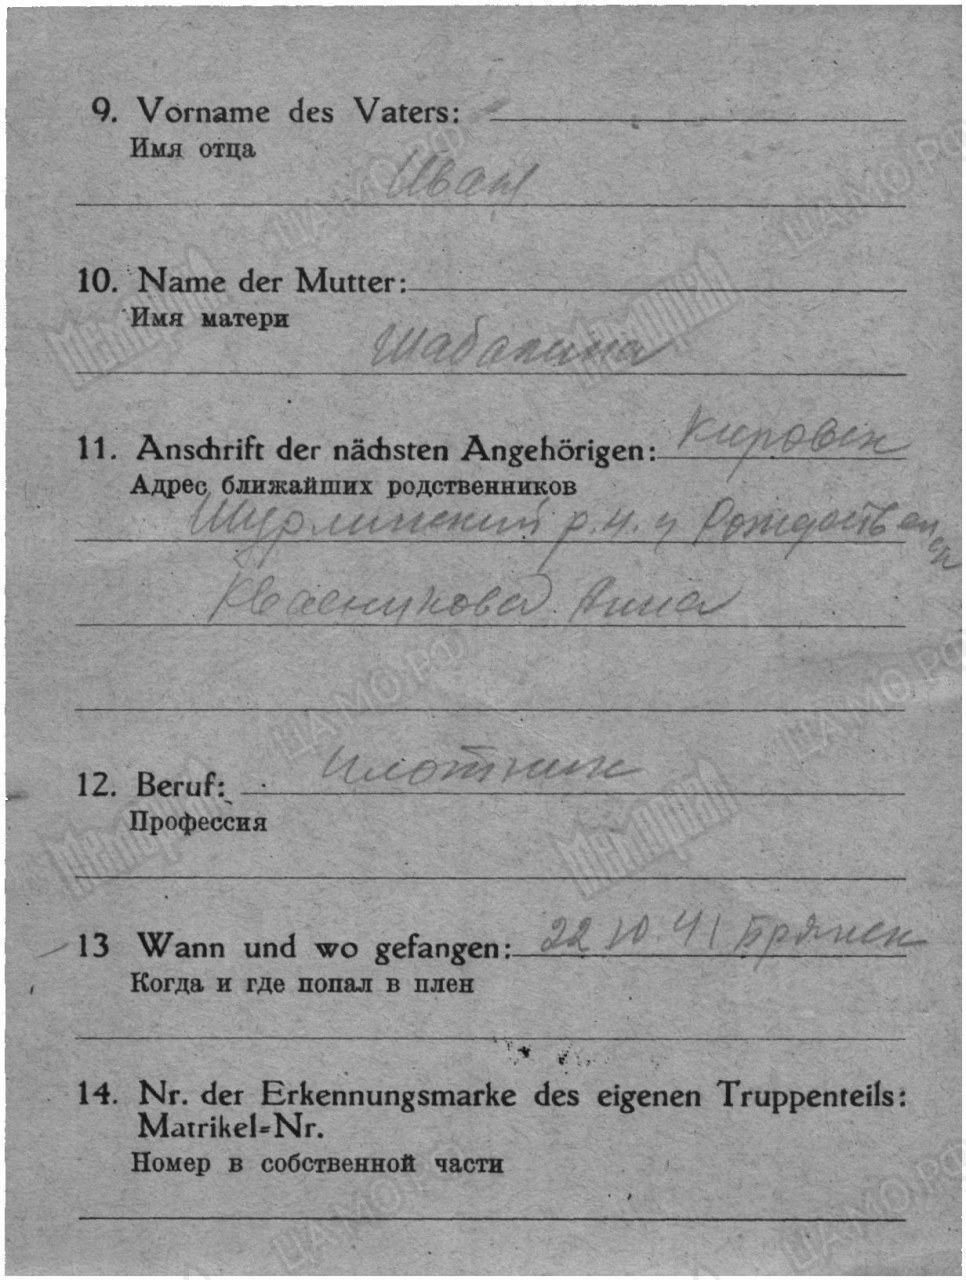 9. Vorname des Vaters:
Имя отца
Иван
10. Name der Mutter:
Имя матери
Шабалина
11. Anschrift der nächsten Angehörigen: Кировск
Адрес ближайших родственников
Шурминский р.н. Рождествен
Анна
12. Beruf: плотник
Профессия
13 Wann und wo gefangen: 22 10. 41 Брянск
Когда и где попал в плен
14. Nr. der Erkennungsmarke des eigenen Truppenteils:
Matrikel-Nr.
Номер в собственной части
ЦА МО РФ
Мемориал